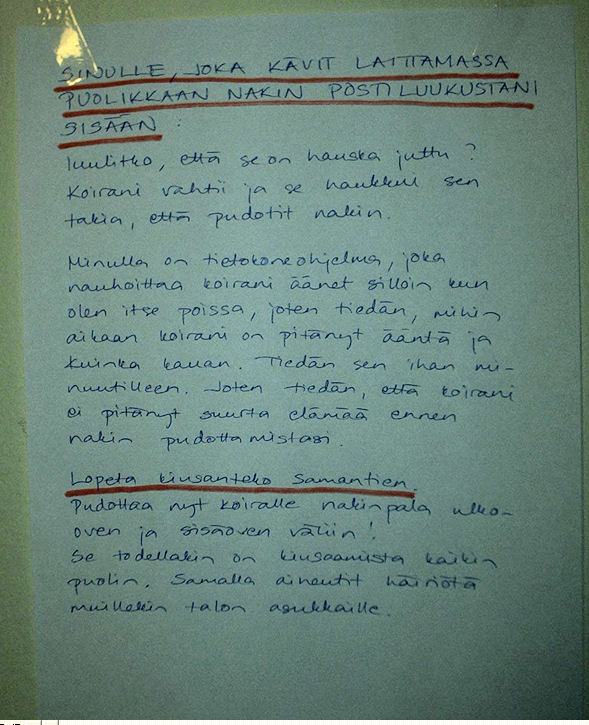 SINULLE, JOKA KÄVIT LAITTAMASSA
PUOLIKKAAN NAKIN POSTILUUKUSTANI
SISÄÄN :
luulitko, että se on hauska juttu?
Koirani vahtii ja se haukkui sen
takia, että pudotit nakin.
Minulla on tietokoneohjelma, joka
nauhoittaa koirani äänet silloin kun
olen itse poissa, joten tiedän, mihin
aikaan koirani on pitänyt ääntä ja
kuinka kauan. Tiedän sen ihan mi-
nuutilleen. Joten tiedän, että koirani
ei pitänyt suurta elämää ennen
nakin pudottamistasi.
Lopeta kiusanteko samantien.
Pudottaa nyt koiralle nakinpala ulko-
oven ja sisäoven väliin!
Se todellakin on kiusaamista kaikin
puolin. Samalla aiheutit häiriötä
muillekin talon asukkaille.